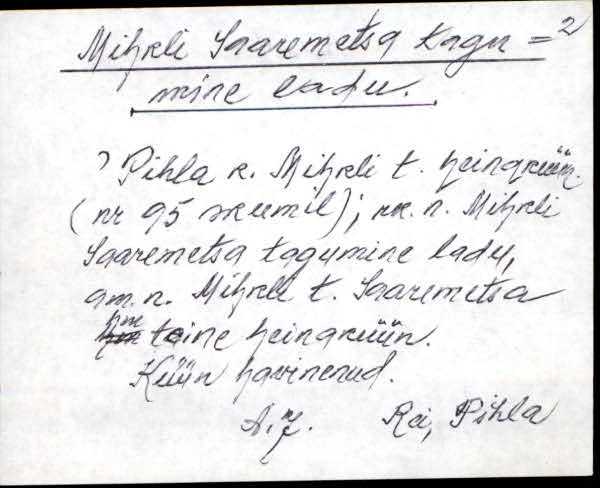 Mihkli Saaremetsa tagu = 2
mine ladu.
Pihla k. Mihkli t. heinaküün.
(nr 95 skeemil); rk. n. Mihkli
Saaremetsa tagumine ladu,
am. n. Mihkli t. Saaremetsa
teine heinaküün.
Küün hävinenud.
Rei, Pihla